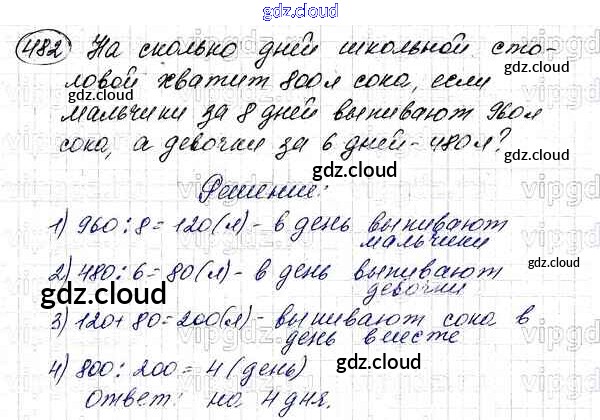 gdz.cloud
482 На сколько дней школьной сто-
ловой хватит 800л сока, если
мальчики за 8 дней выпивают 960л
gdz.cloud
сока, а девочки за 6 дней - 480л?
gdz.cloud
Решение:
1) 960:8=120(л) - в день выпивают
мальчики
gdz.cloud
2) 480:6=80(л) - в день выпивают
девочки
gdz.cloud
gdz.cloud
3) 120+80=200(л) - выпивают сока в
день вместе
4) 800:200=4 (день)
gdz.cloud
Ответ: на 4 дня.
gdz.cloud